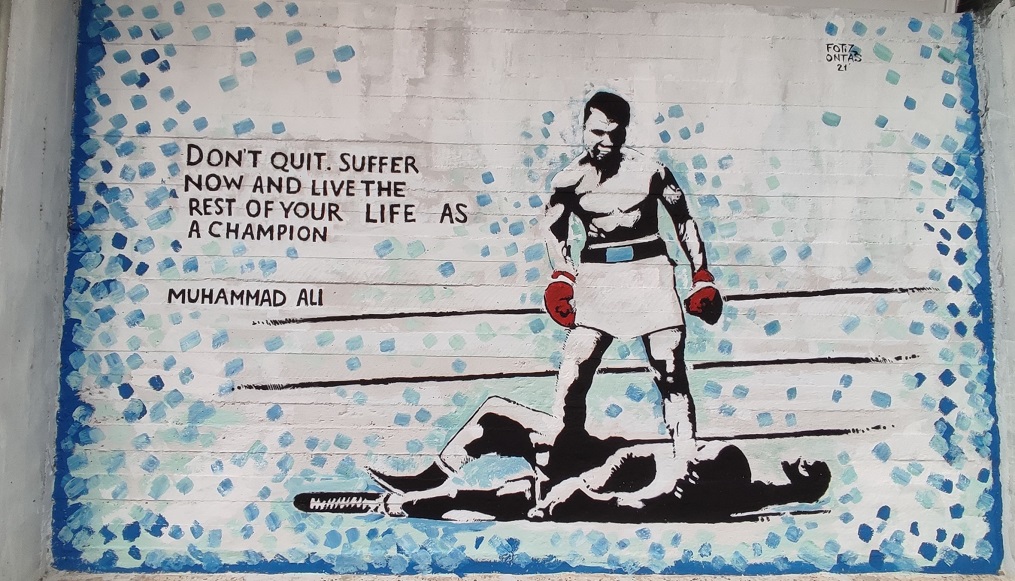 DON'T QUIT. SUFFER
NOW AND LIVE THE
REST OF YOUR LIFE AS
A CHAMPION
MUHAMMAD ALI
FOTIZ
ONTAS
21